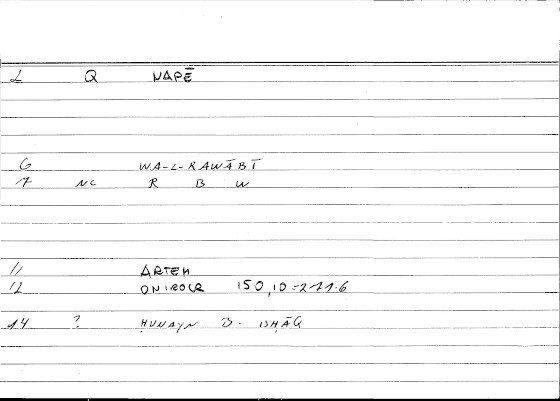 1 Q NAPĒ
6 WA-L-RAWĀBĪ
7 NC R B W
11 ARTEM
12 ONIROCR 150,10=271.6
14 ? ḤUNAYN B. ISḤĀQ